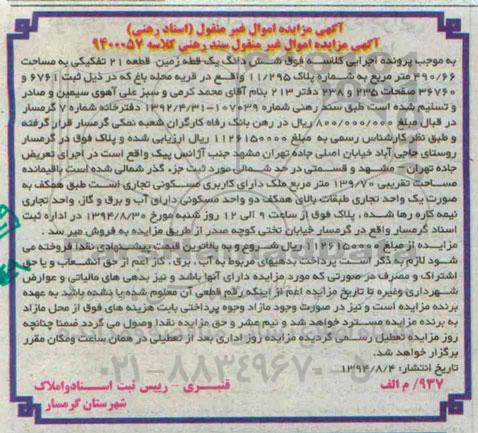 آگهی مزایده اموال غیر منقول (اسناد رهنی)
آگهی مزایده اموال غیر منقول سند رهنی کلاسه ۹۴۰۰۰۵۷
به موجب پرونده اجرایی کلاسه فوق شش دانگ یک قطعه زمین قطعه ۲۱ تفکیکی به مساحت
۴۹۰/۶۶ متر مربع به شماره پلاک ۱۱/۲۹۵ واقع در قریه محله باغ که در ذیل ثبت ۶۷۶۱ و
۳۶۷۶۰ صفحات ۲۳۵ و ۲۳۸ دفتر ۲۱۳ بنام آقای محمد کرمی و سبز علی آهوی سیمین و صادر
و تسلیم شده است طبق سند رهنی شماره ۱۰۷۰۳۹-۱۳۹۲/۴/۳۱ دفترخانه شماره ۷ گرمسار
در قبال مبلغ ۸۰۰/۰۰۰/۰۰۰ ریال در رهن بانک رفاه کارگران شعبه نمکی گرمسار قرار گرفته
و طبق نظر کارشناس رسمی به مبلغ ۱۱۲۶۱۵۰۰۰۰ ریال ارزیابی شده و پلاک فوق در گرمسار
روستای حاجی آباد خیابان اصلی جاده تهران مشهد جنب آژانس پیک واقع است در اجرای تعریض
جاده تهران – مشهد و قسمتی در حد شمالی مورد ثبت جزء گذر شمالی شده است باقیمانده
مساحت تقریبی ۱۳۹/۷۰ متر مربع ملک دارای کاربری مسکونی تجاری است طبق همکف به
صورت یک واحد تجاری طبقات بالای همکف دو واحد مسکونی دارای آب و برق و گاز، واحد تجاری
نیمه کاره رها شده، پلاک فوق از ساعت ۹ الی ۱۲ روز شنبه مورخ ۱۳۹۴/۸/۳۰ در اداره ثبت
اسناد گرمسار واقع در گرمسار خیابان تختی کوچه صدر از طریق مزایده به فروش میر سد.
مزایده از مبلغ ۱۱۲۶۱۵۰۰۰۰ ریال شروع و به بالاترین قیمت پیشنهادی نقدا فروخته می
شود لازم به ذکر است پرداخت بدهیهای مربوط به آب، برق، گاز اعم از حق انشعاب و یا حق
اشتراک و مصرف در صورتی که مورد مزایده دارای آنها باشد و نیز بدهی های مالیاتی و عوارض
شهرداری وغیره تا تاریخ مزایده اعم از اینکه رقم قطعی آن معلوم شده یا نشده باشد به عهده
برنده مزایده است و نیز در صورت وجود مازاد وجوه پرداختی بابت هزینه های فوق از محل مازاد
به برنده مزایده مسترد خواهد شد و نیم عشر و حق مزایده نقدا وصول می گردد ضمنا چنانچه
روز مزایده تعطیل رسمی گردیده مزایده روز اداری بعد از تعطیلی در همان ساعت ومکان مقرر
برگزار خواهد شد.
تاریخ انتشار: ۱۳۹۴/۸/۴
۹۳۷/ م الف
قنبری – رییس ثبت اسنادواملاک
شهرستان گرمسار
۰۲۱-۸۸۳۴۹۶۷۰-۵